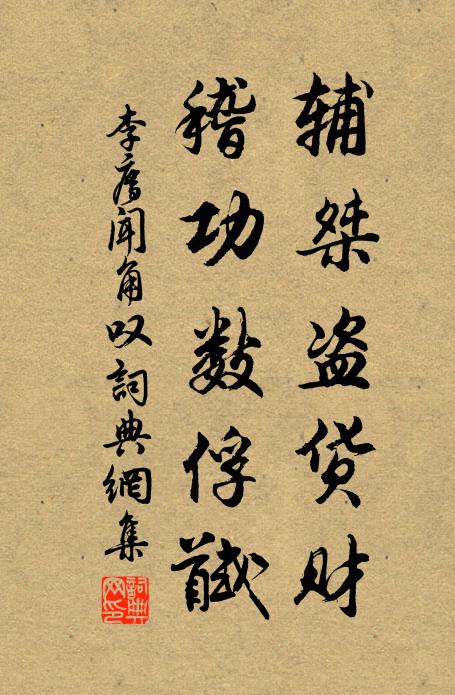 辅桀盗货财
稽功数俘馘
李廌闻角叹詞典網集
詞典网印